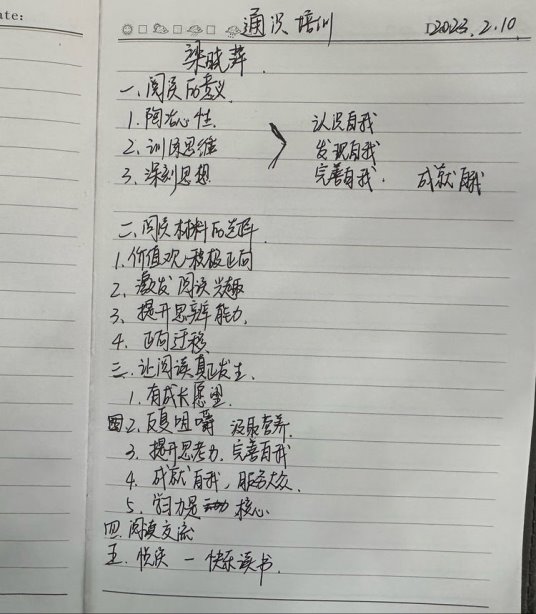 ate:
通识培训 2023.2.10
梁晓燕.
一、阅读的意义
1.陶冶心性 认识自我
2.训练思维 发现自我
3.深刻思想 完善自我. 成就自我
二、阅读材料的选择.
1.价值观、积极正向
2.激发阅读兴趣
3.提升思辨能力.
4.正向迁移
三.让阅读真正发生.
1.有成长愿望.
2.反复咀嚼 汲取营养.
3.提升思考力.完善自我
4.成就自我,服务大众.
5.学习力是 核心
四.阅读交流
五.悦读—快乐读书.